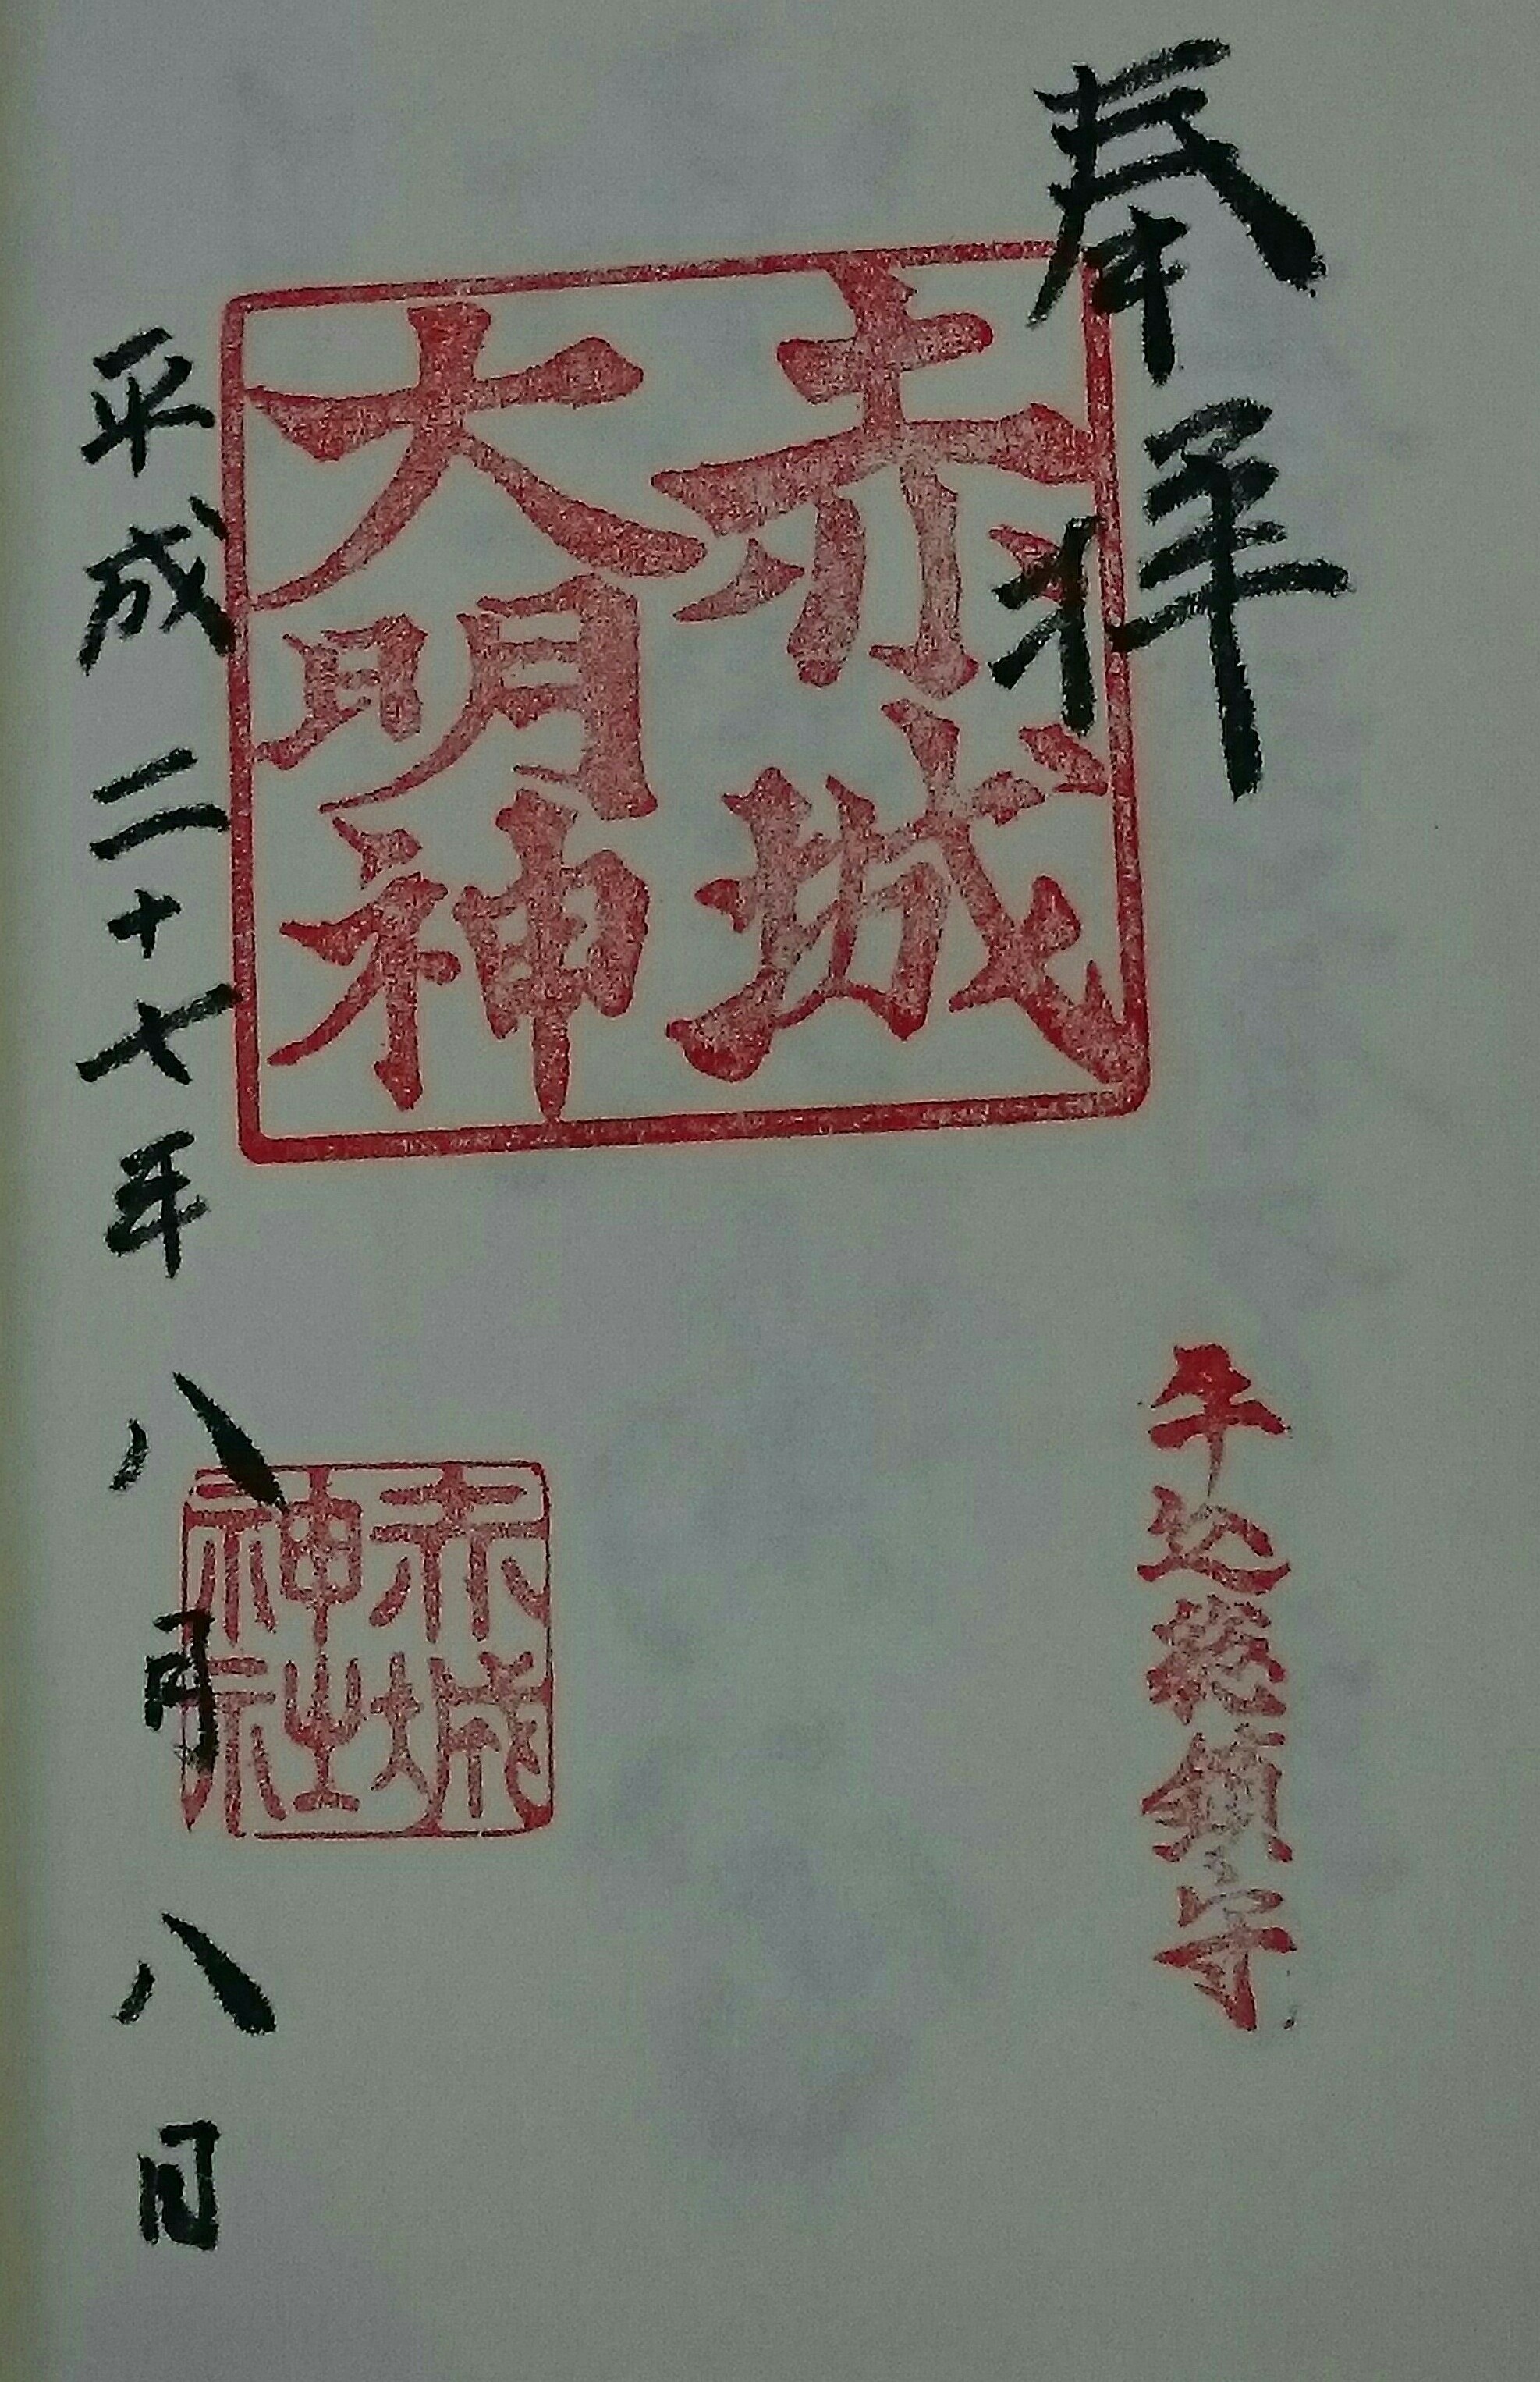 奉拝
牛込総鎮守
赤城
大明神
赤城
神社
平成二十七年八月八日